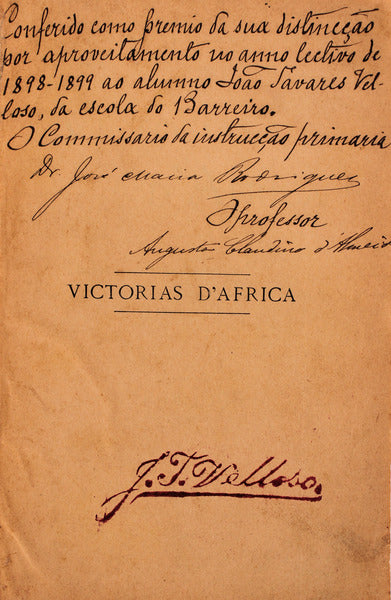 Conferido como premio da sua distincção
por aproveitamento no anno lectivo de
1898-1899 ao alumno João Tavares Vel-
loso, da escola do Barreiro.
O Commissario da instrucção primaria
Dr. José Maria Rodrigues
O professor
Augusto Claudino d'Almeid
VICTORIAS D'AFRICA
J. T. Velloso.